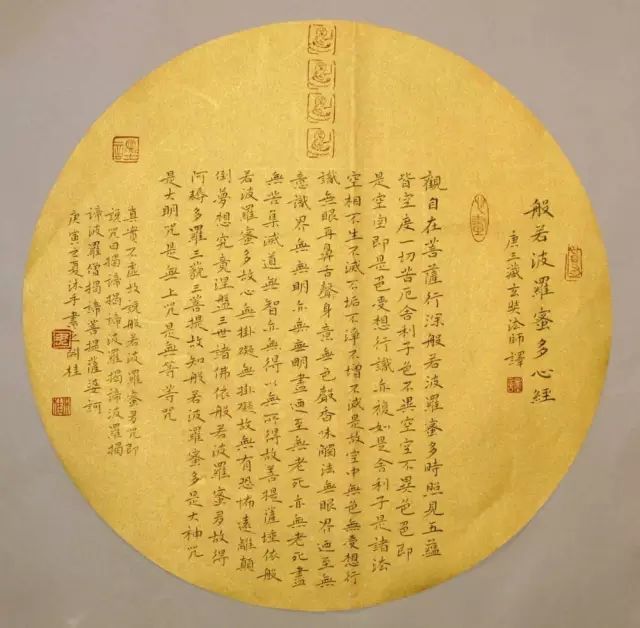 般若波羅蜜多心經
唐三藏玄奘法師譯
觀自在菩薩行深般若波羅蜜多時照見五蘊
皆空度一切苦厄舍利子色不異空空不異色色即
是空空即是色受想行識亦復如是舍利子是諸法
空相不生不滅不垢不淨不增不減是故空中無色無受想行
識無眼耳鼻舌聲身意無色聲香味觸法無眼界迺至無
意識界無無明亦無無明盡迺至無老死亦無老死盡
無苦集滅道無智亦無得以無所得故菩提薩埵依般
若波羅蜜多故心無掛礙無掛礙故無有恐怖遠離顛
倒夢想究竟涅盤三世諸佛依般若波羅蜜多故得
阿耨多羅三藐三菩提故知般若波羅蜜多是大神咒
是大明咒是無上咒是無等等咒
真實不虛故說般若波羅蜜多咒即
說咒曰揭諦揭諦波羅揭諦波羅揭
諦波羅僧揭諦菩提薩婆訶
庚寅之夏沐手書 桂